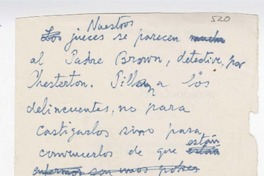 Nuestros 520
Los jueces se parecen mucho
al Padre Brown, detective, por
Chesterton. Pillan a los
delincuentes, no para
castigarlos sino para
convencerlos de que están
están
enfermos son unos pobres